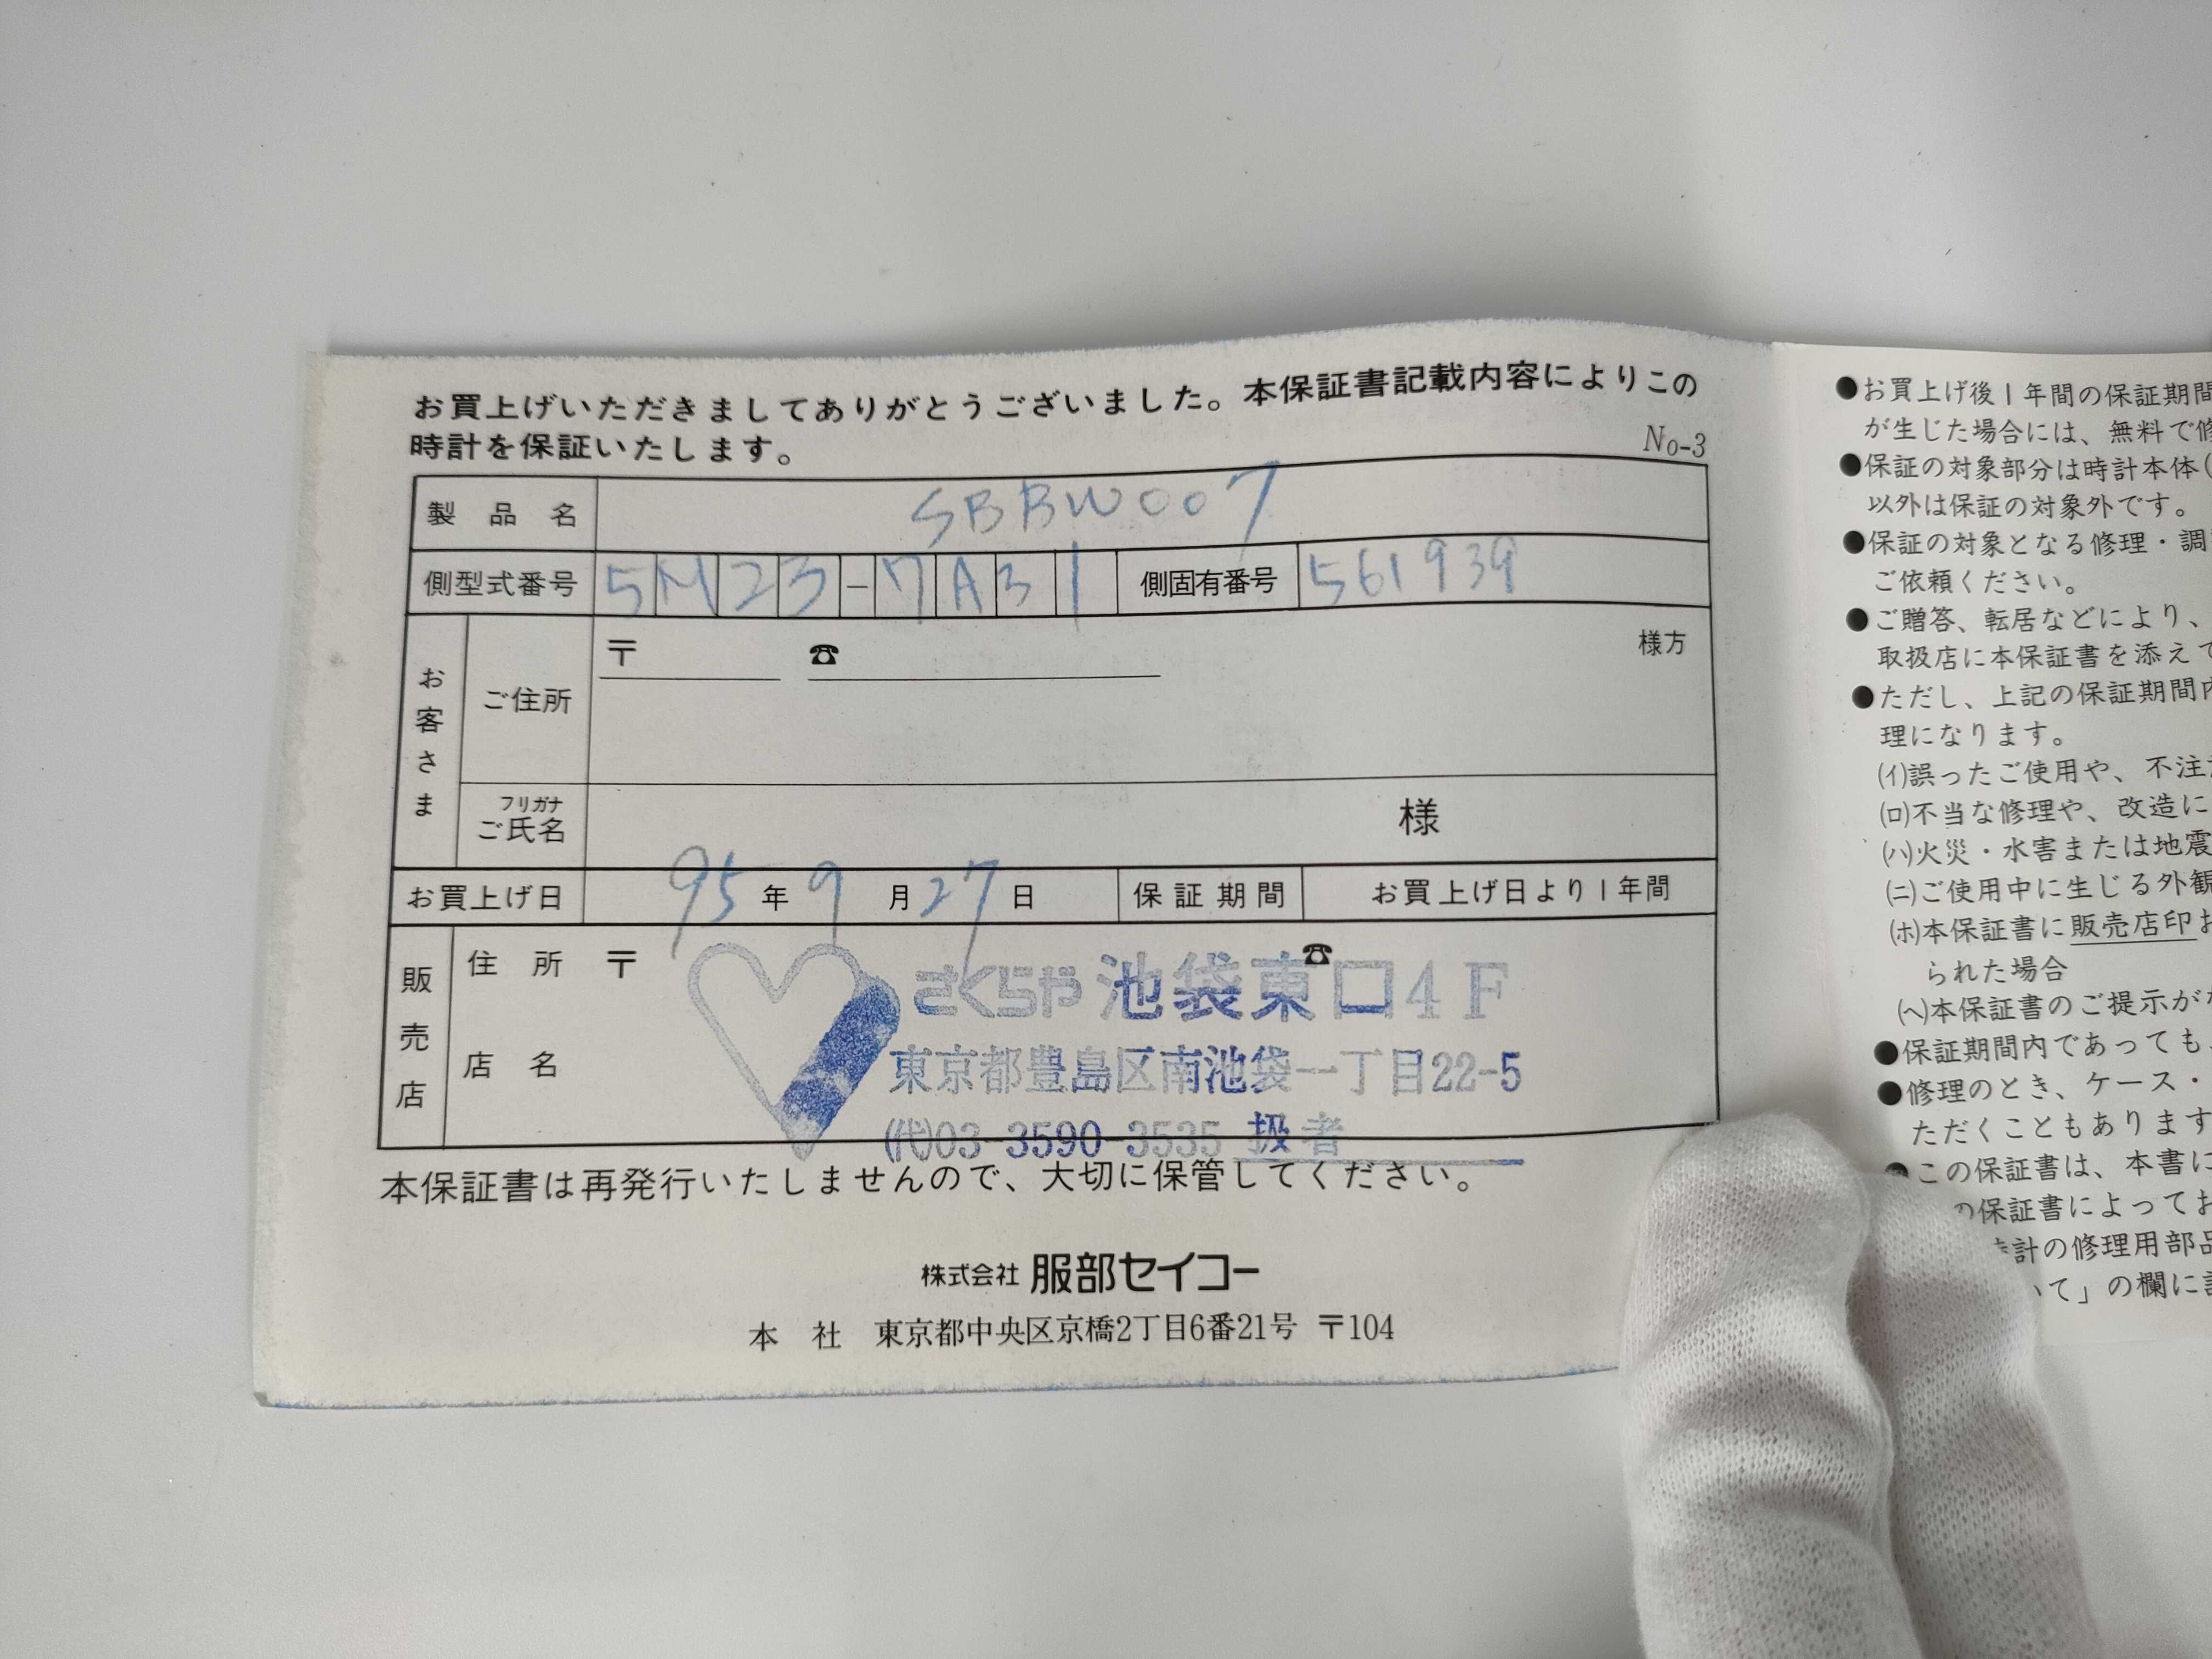 お買上げいただきましてありがとうございました。本保証書記載内容によりこの
時計を保証いたします。
No-3
製品名 SBBW007
側型式番号 5M23-7A31 側固有番号 561939
お客さま
ご住所 〒 ☎ 様方
フリガナ
ご氏名 様
お買上げ日 95年9月27日 保証期間 お買上げ日より1年間
販売店
住所 〒 ☎
店名
さくらや 池袋東口4F
東京都豊島区南池袋一丁目22-5
㈹03-3590-3535 扱者
本保証書は再発行いたしませんので、大切に保管してください。
株式会社 服部セイコー
本社 東京都中央区京橋2丁目6番21号 〒104
●お買上げ後1年間の保証期間
が生じた場合には、無料で修
●保証の対象部分は時計本体(
以外は保証の対象外です。
●保証の対象となる修理・調
ご依頼ください。
●ご贈答、転居などにより、
取扱店に本保証書を添えて
●ただし、上記の保証期間内
理になります。
(イ)誤ったご使用や、不注
(ロ)不当な修理や、改造に
(ハ)火災・水害または地震
(ニ)ご使用中に生じる外観
(ホ)本保証書に販売店印お
られた場合
(ヘ)本保証書のご提示が
●保証期間内であっても、
●修理のとき、ケース・
ただくこともあります
●この保証書は、本書に
の保証書によってお
時計の修理用部品
いて」の欄に